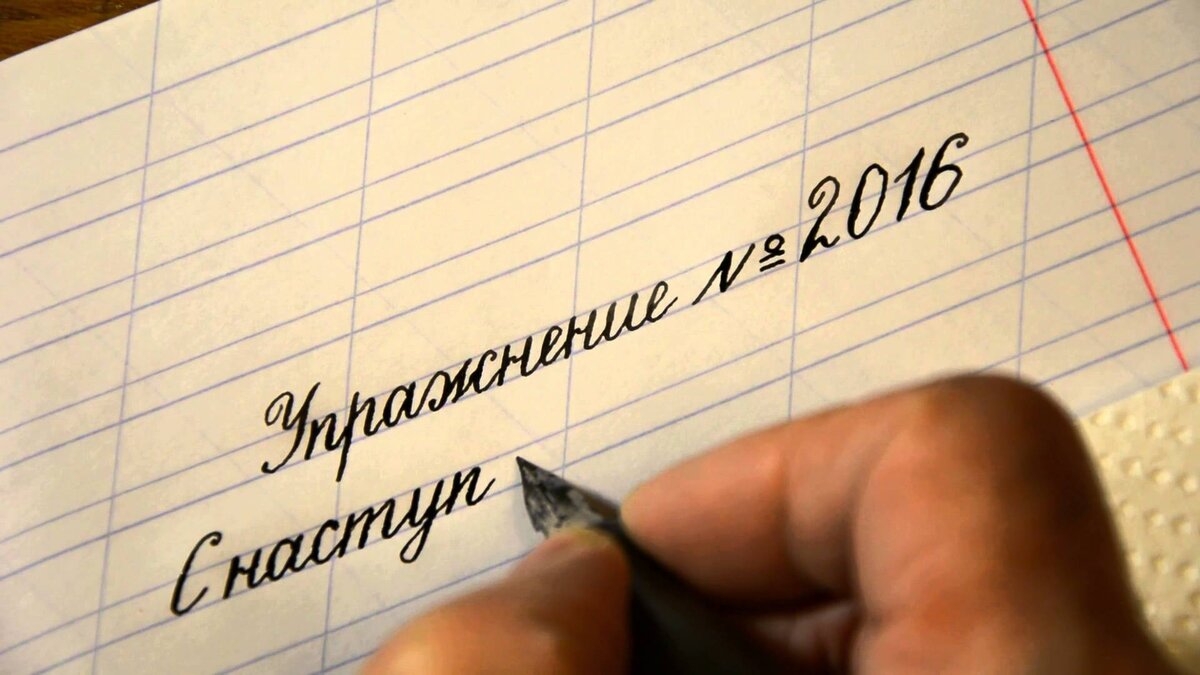 Упражнение № 2016
С наступ